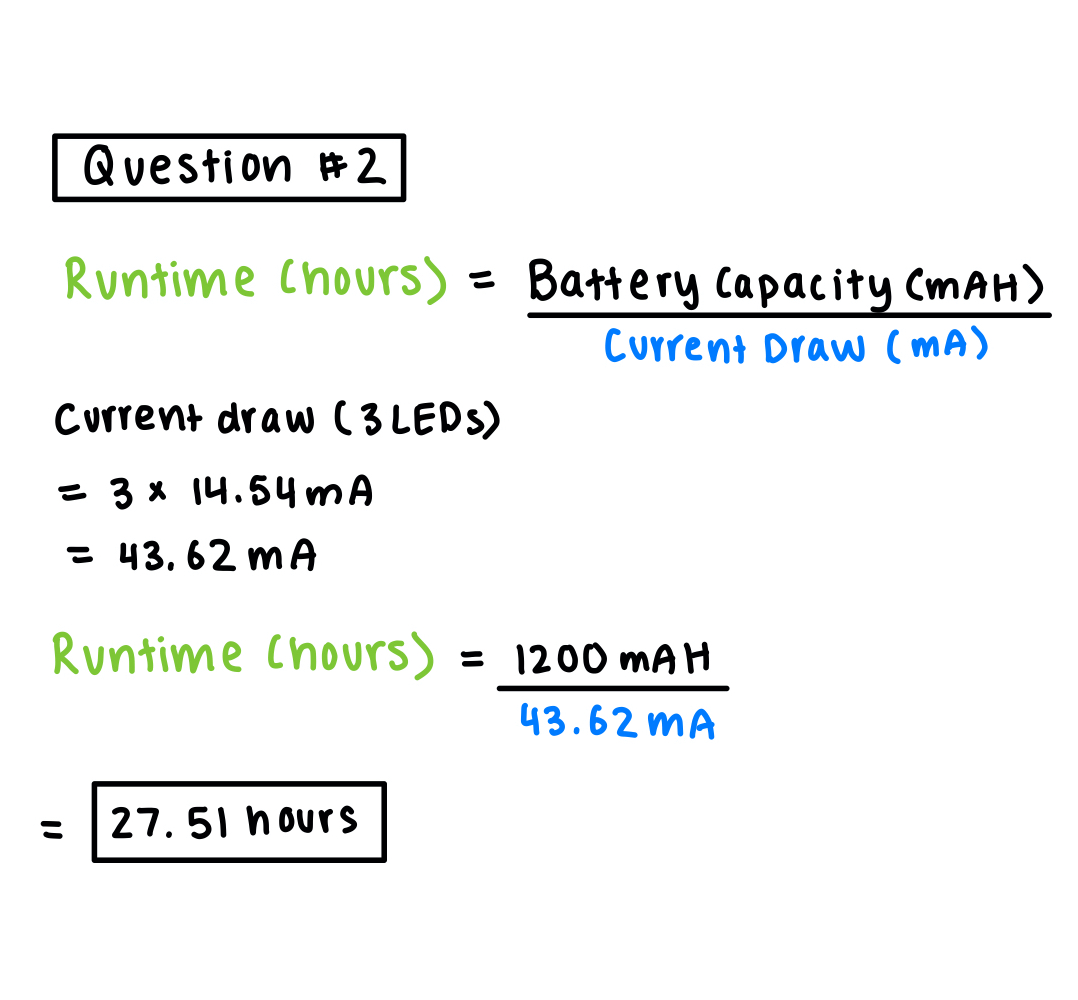 Question #2
Runtime (hours) = Battery Capacity (mAH)
Current Draw (mA)
Current draw (3 LEDs)
= 3 × 14.54 mA
= 43.62 mA
Runtime (hours) = 1200 mAH
43.62 mA
= 27.51 hours